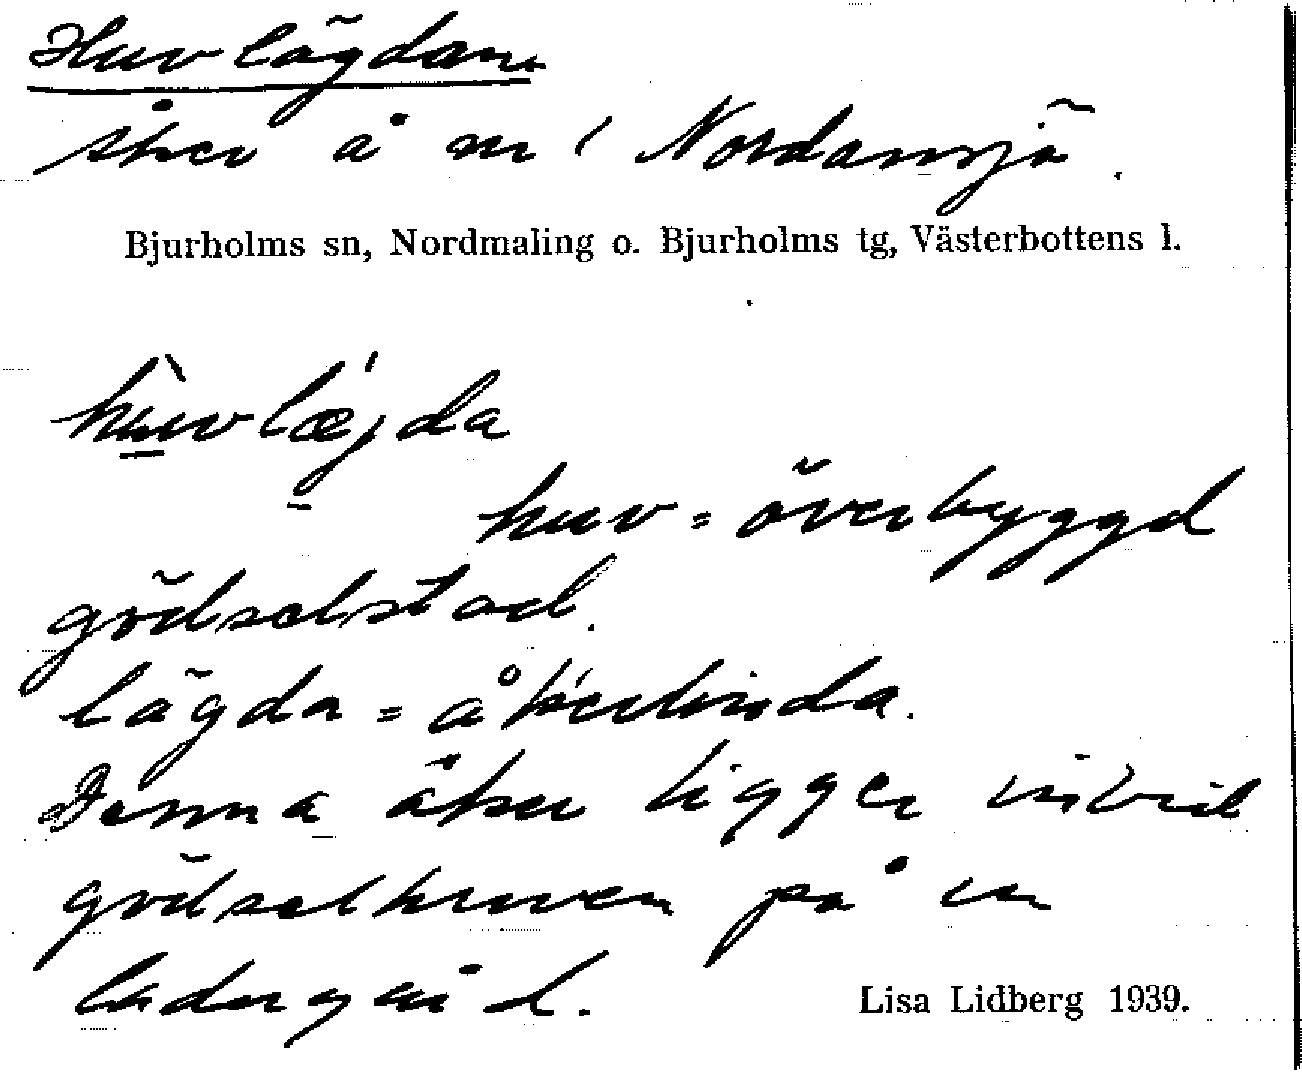 Huvlägdan
åker å nr 1 Nordansjö.
Bjurholms sn, Nordmaling o. Bjurholms tg, Västerbottens l.
hù̲vlǽgda
huv = överbyggd
gödselstad.
lägda = åkerlinda.
Denna åker ligger invid
gödselhuven på en
ladugård.
Lisa Lidberg 1939.